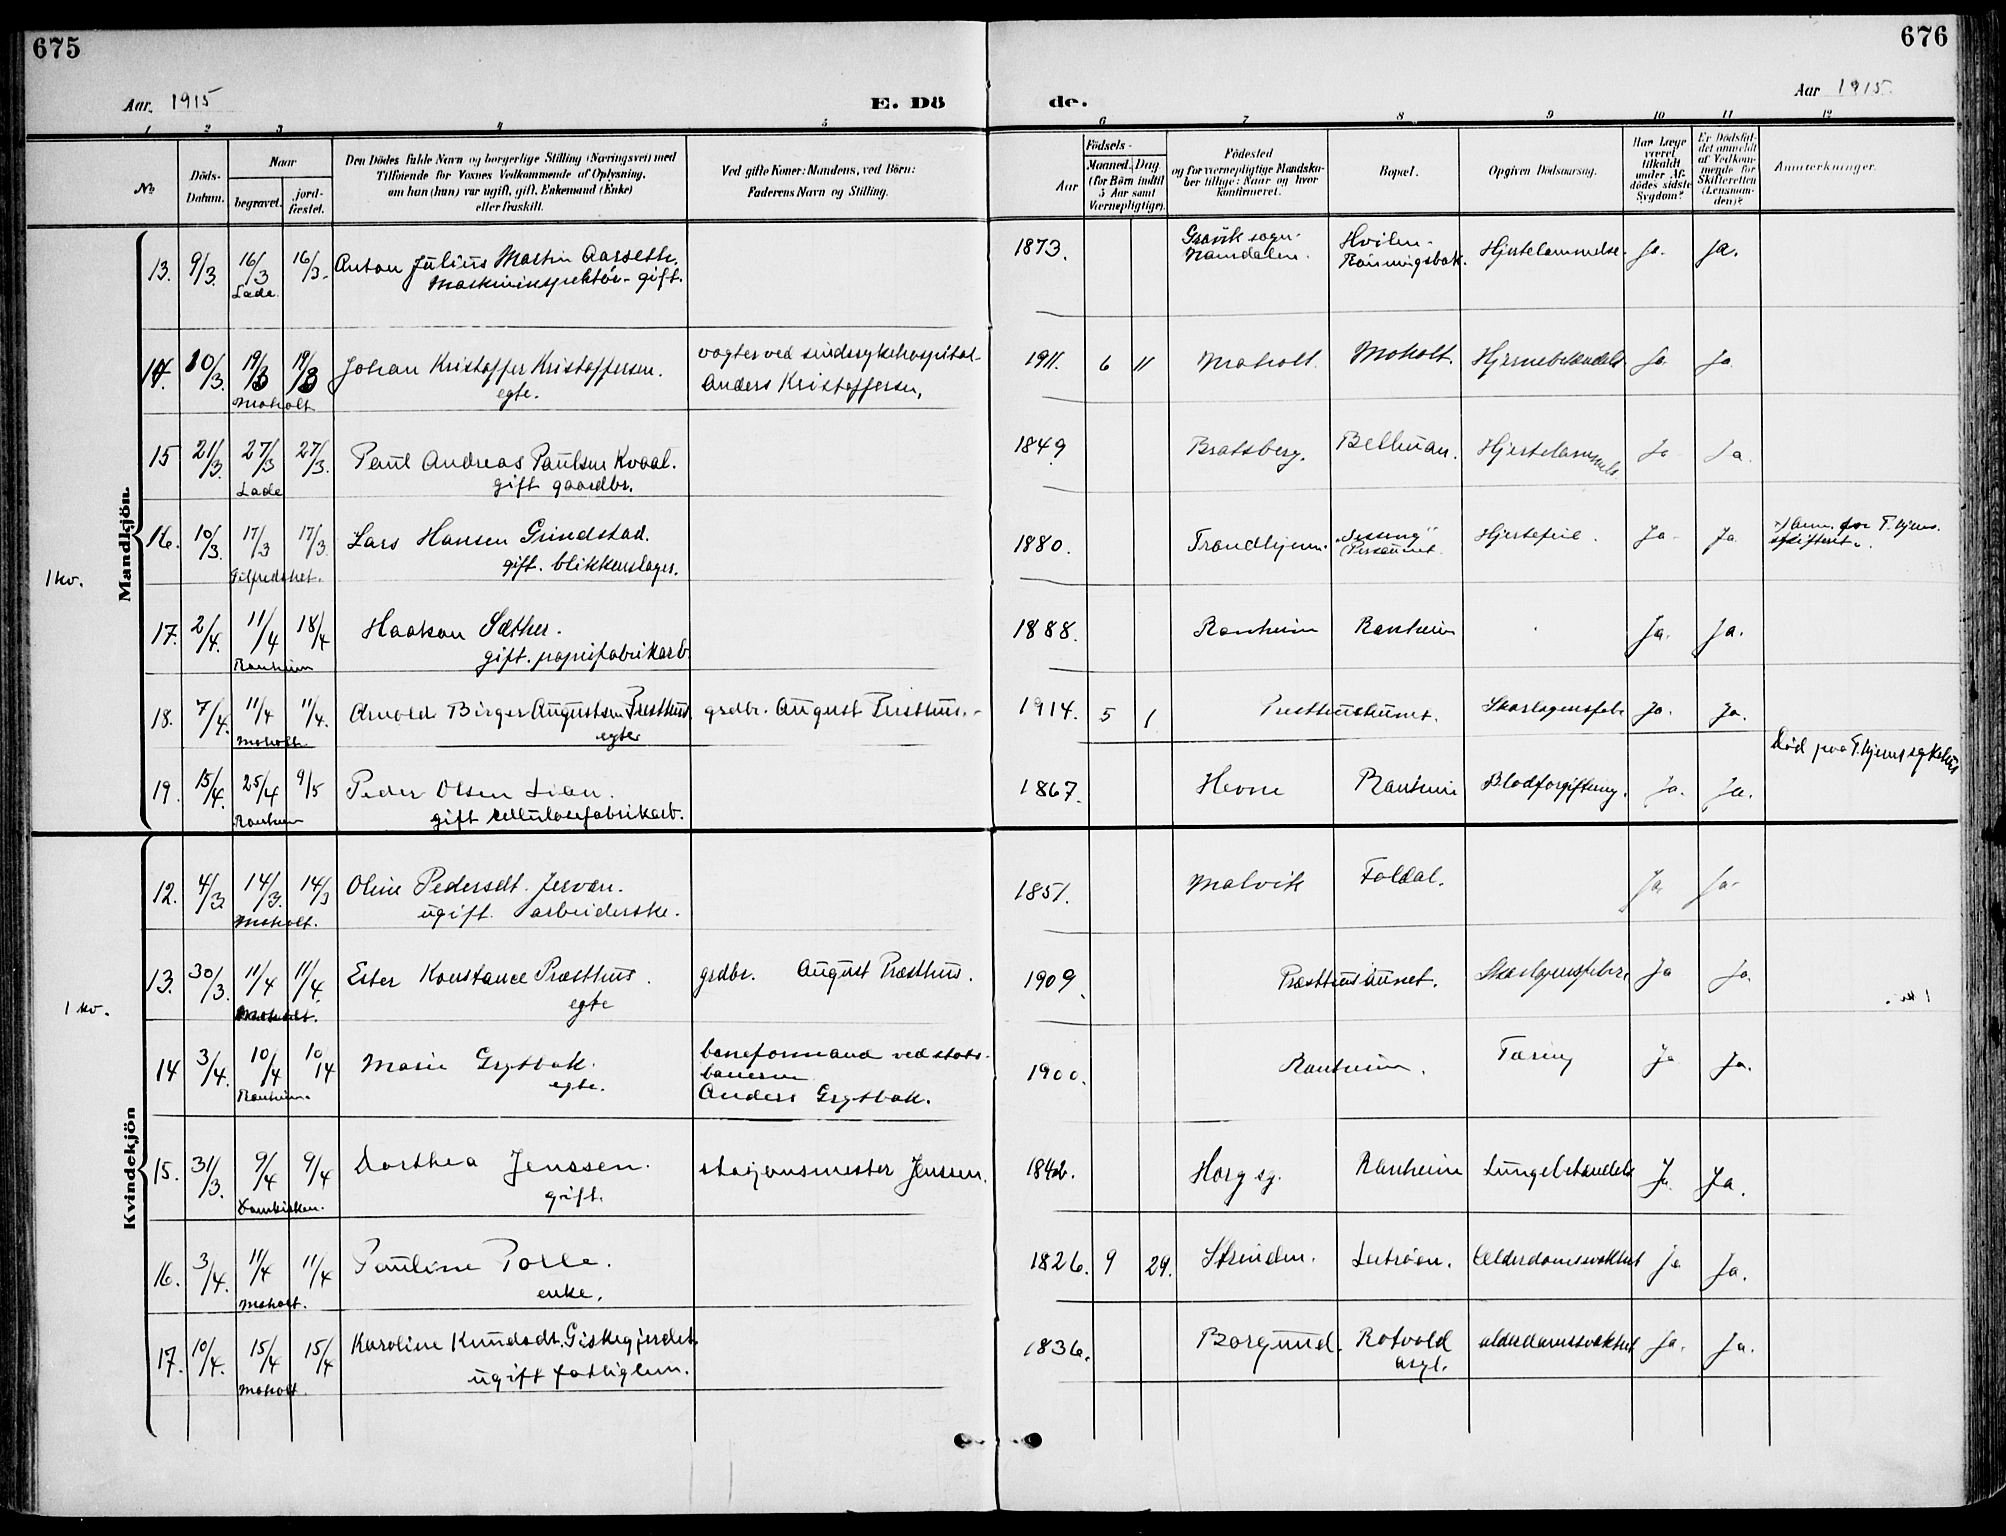 675
676
Aar. 1915
E. Dö
de.
Aar 1915.
1 2 3 4 5
6 7 8 9 10 11 12
No
Döds-
Datum.
Naar
begravet.
jord-
fæstet.
Den Dödes fulde Navn og borgerlige Stilling (Næringsvei) med
Tilföiende for Voxnes Vedkommende af Oplysning,
om han (hun) var ugift, gift, Enkemand (Enke)
eller fraskilt.
Ved gifte Koner: Mandens, ved Börn:
Faderens Navn og Stilling.
Aar
Födsels-
Maaned. Dag
(for Börn indtil
5 Aar samt
Værnepligtige).
Födested
og for værnepligtige Mandska-
ber tillige: Naar og hvor
konfirmeret.
Bopæl.
Opgiven Dödsaarsag.
Har Læge
været
tilkaldt
under Af-
dödes sidste
Sygdom?
Er Dödsfal-
det anmeldt
af Vedkom-
mende for
Skifteretten
(Lensman-
den)?
Anmerkninger.
Mandkjön.
1 kv.
13. 9/3. 16/3 16/3. Anton Julius Martin Aarseth. 1873. Gravik sogn. Hvilen- Hjertelammelse. Ja. Ja.
Lade. Maskininspektör - gift. Namdalen. Rönningsbak.
14. 10/3. 19/3 19/3 Johan Kristoffer Kristoffersen. vogter ved sindssykehospital 1911. 6 11 Moholt. Moholt. Ja. Ja
Moholt egte. Anders Kristoffersen,
15 21/3. 27/3 27/3. Paul Andreas Paulsen Kvaal. 1849 Bratsberg. Belbuan. Hjertelammelse Ja Ja.
Lade gift gaardbr.
16. 10/3. 17/3 17/3. Lars Hansen Grindstad. 1880. Trondhjem. Hjertefeil. Ja. Ja
gift. blikkenslager.
17. 2/4. 11/4 18/4 Haakon Sæther. 1888. Ranheim Ranheim Ja. Ja.
Ranheim gift. papirfabrikarb.
18. 7/4. 11/4 11/4. Arnold Birger Augustsen Presthus. grdbr. August Presthus. 1914. 5 1 Presthusaunet. Skarlagensfeb. Ja. Ja.
Moholt. egte
Död paa T.hjems sykehus
19. 15/4. 25/4 9/5 Peder Olsen Lian. 1867. Hevne Ranheim Blodforgiftning. Ja. Ja.
Ranheim gift cellulosefabrikarb.
Kvindekjön
1 kv.
12. 4/3 14/3. 14/3 Oline Pedersdt. Jervan. 1851. Malvik Foldal. Ja Ja
Moholt. ugift. arbeiderske.
13. 30/3. 11/4 11/4. Ester Konstance Præsthus. grdbr. August Præsthus. 1909. Præsthusaunet. Skarlagensfeber Ja Ja.
Moholt. egte
14 3/4. 10/4 10/4 Marie Grytbak. baneformand ved stats- 1900. Ranheim. Tæring Ja Ja.
Ranheim. egte. banerne
Anders Grytbak.
15. 31/3. 9/4 9/4 Dorthea Jenssen. stasjonsmester Jenssen. 1842. Horg sg. Ranheim Lungebetændelse Ja Ja.
Domkirken. gift.
16. 3/4. 11/4 11/4 Pauline Polle. 1826. 9 29. Strinden. Leirösen. Alderdomssvakhet Ja Ja.
Moholt. enke.
17. 10/4. 15/4 15/4 Karoline Knudsdt. Giskegjerdet. 1836. Borgund. Rotvold alderdomssvakhet Ja. Ja.
Moholt. ugift fattiglem. asyl.